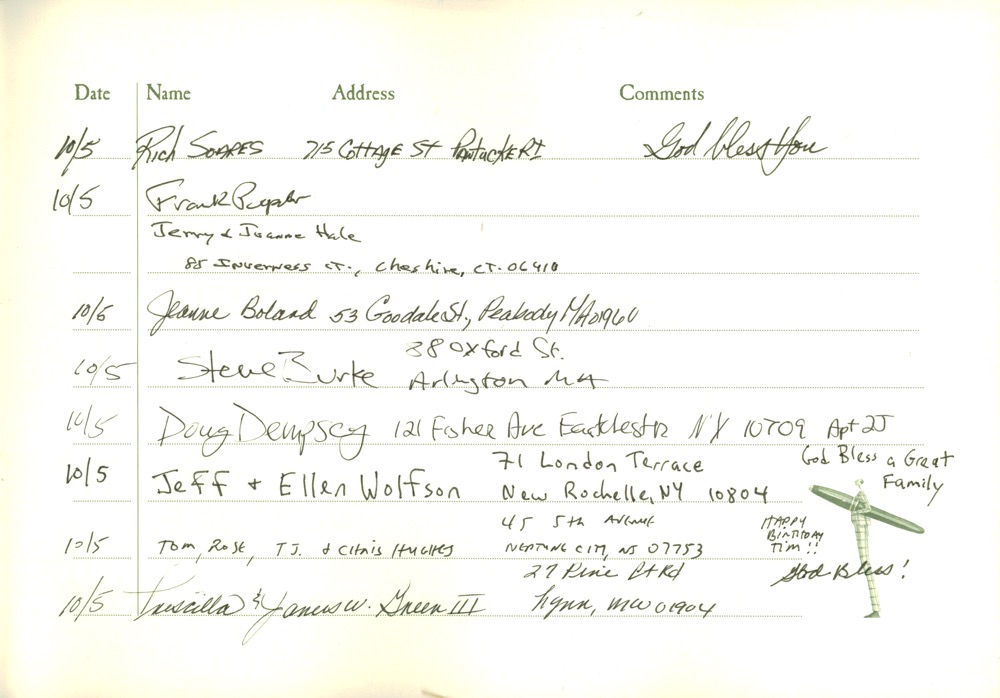 Date Name Address Comments
10/5 Rich SOARES 715 COTTAGE ST PAWTUCKET RI God bless You
10/5 Frank
Jerry & Joanne Hale
85 INVERNESS CT., Cheshire, CT. 06410
10/5 Jeanne Boland 53 Goodale St., Peabody MA 01960
38 Oxford St.
10/5 Steve Burke Arlington MA
10/5 Doug Dempsey 121 Fisher Ave Eastchester NY 10709 Apt 2J
71 London Terrace God Bless a Great
10/5 Jeff + Ellen Wolfson New Rochelle, NY 10804 Family
45 5th AVENUE HAPPY
BIRTHDAY
10/5 Tom, Rose, T.J. & CHRIS HUGHES NEPTUNE CITY, NJ 07753 TIM!!
27 Pine Pt Rd God Bless!
10/5 Priscilla & James W. Green III Lynn, MA 01904